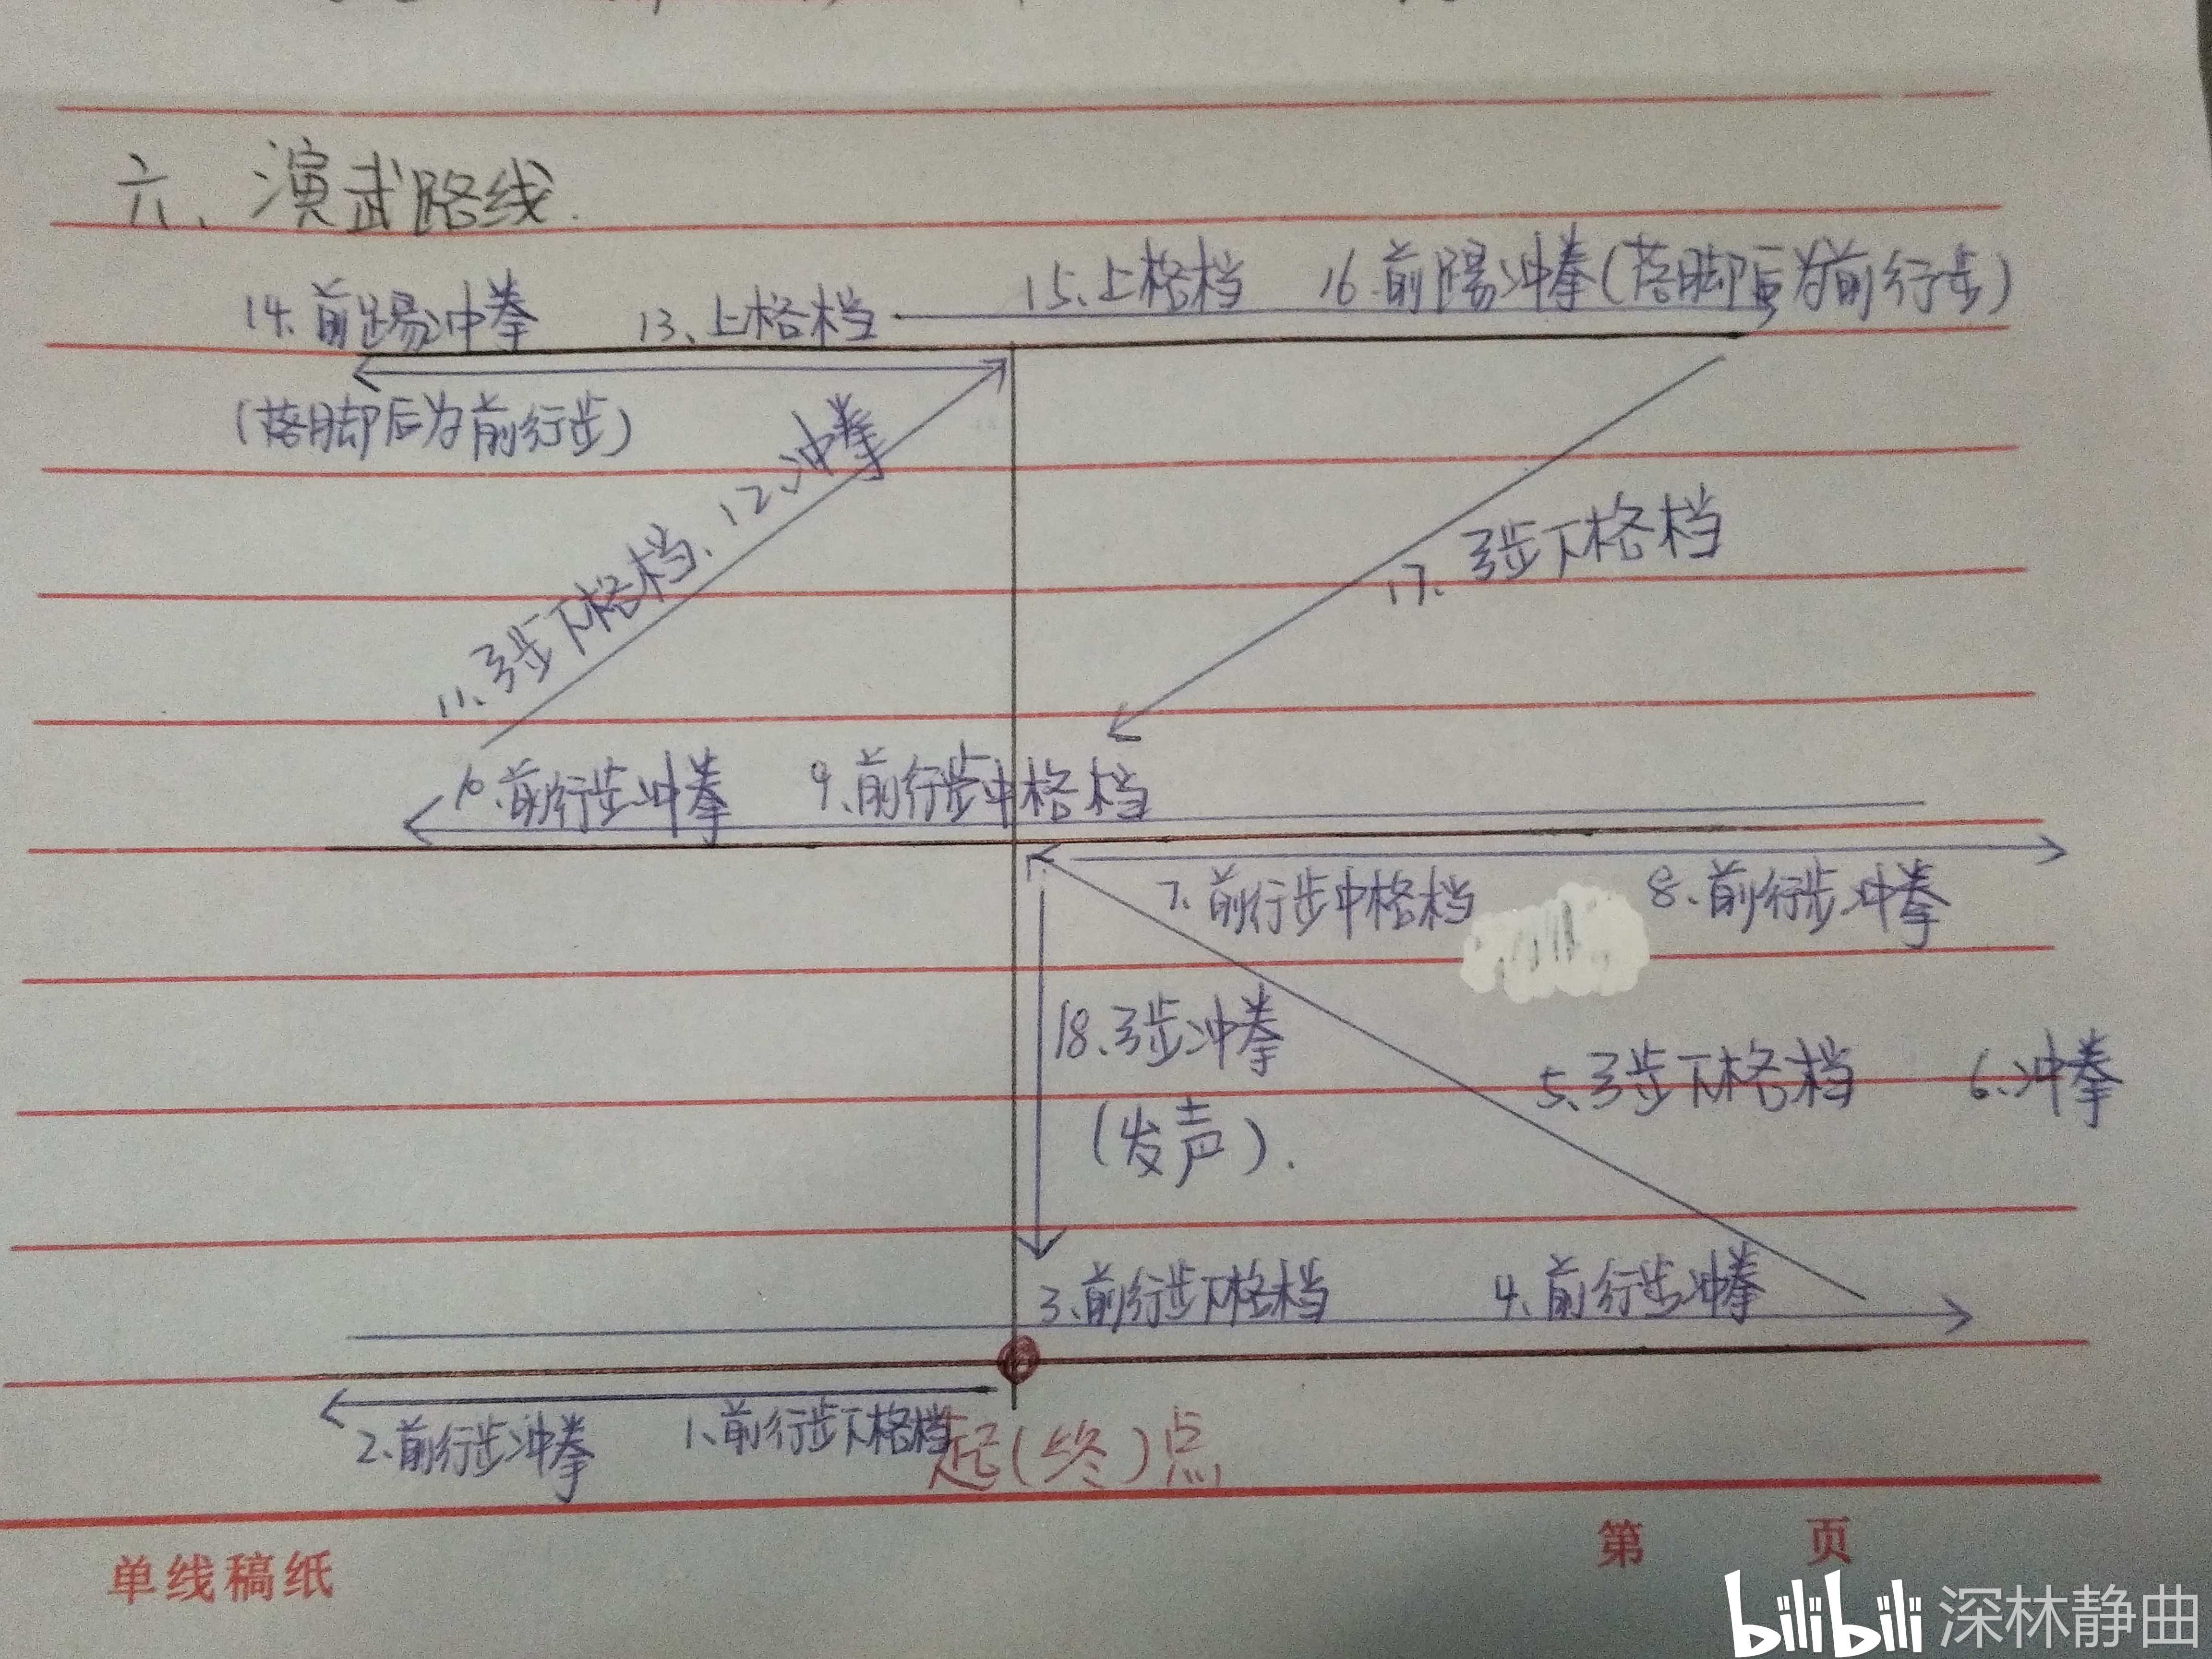 六、演武路线.
15、上格档 16.前踢冲拳(落脚后为前行步)
14.前踢冲拳 13、上格档
(落脚后为前行步)
11、弓步下格档、12、冲拳
17、弓步下格档
10.前行步冲拳 9、前行步中格档
7、前行步中格档 8、前行步冲拳
18、弓步冲拳
(发声).
5、弓步下格档 6、冲拳
3、前行步下格档 4、前行步冲拳
2.前行步冲拳 1、前行步下格档
起(终)点
单线稿纸 第 页
bilibili 深林静曲